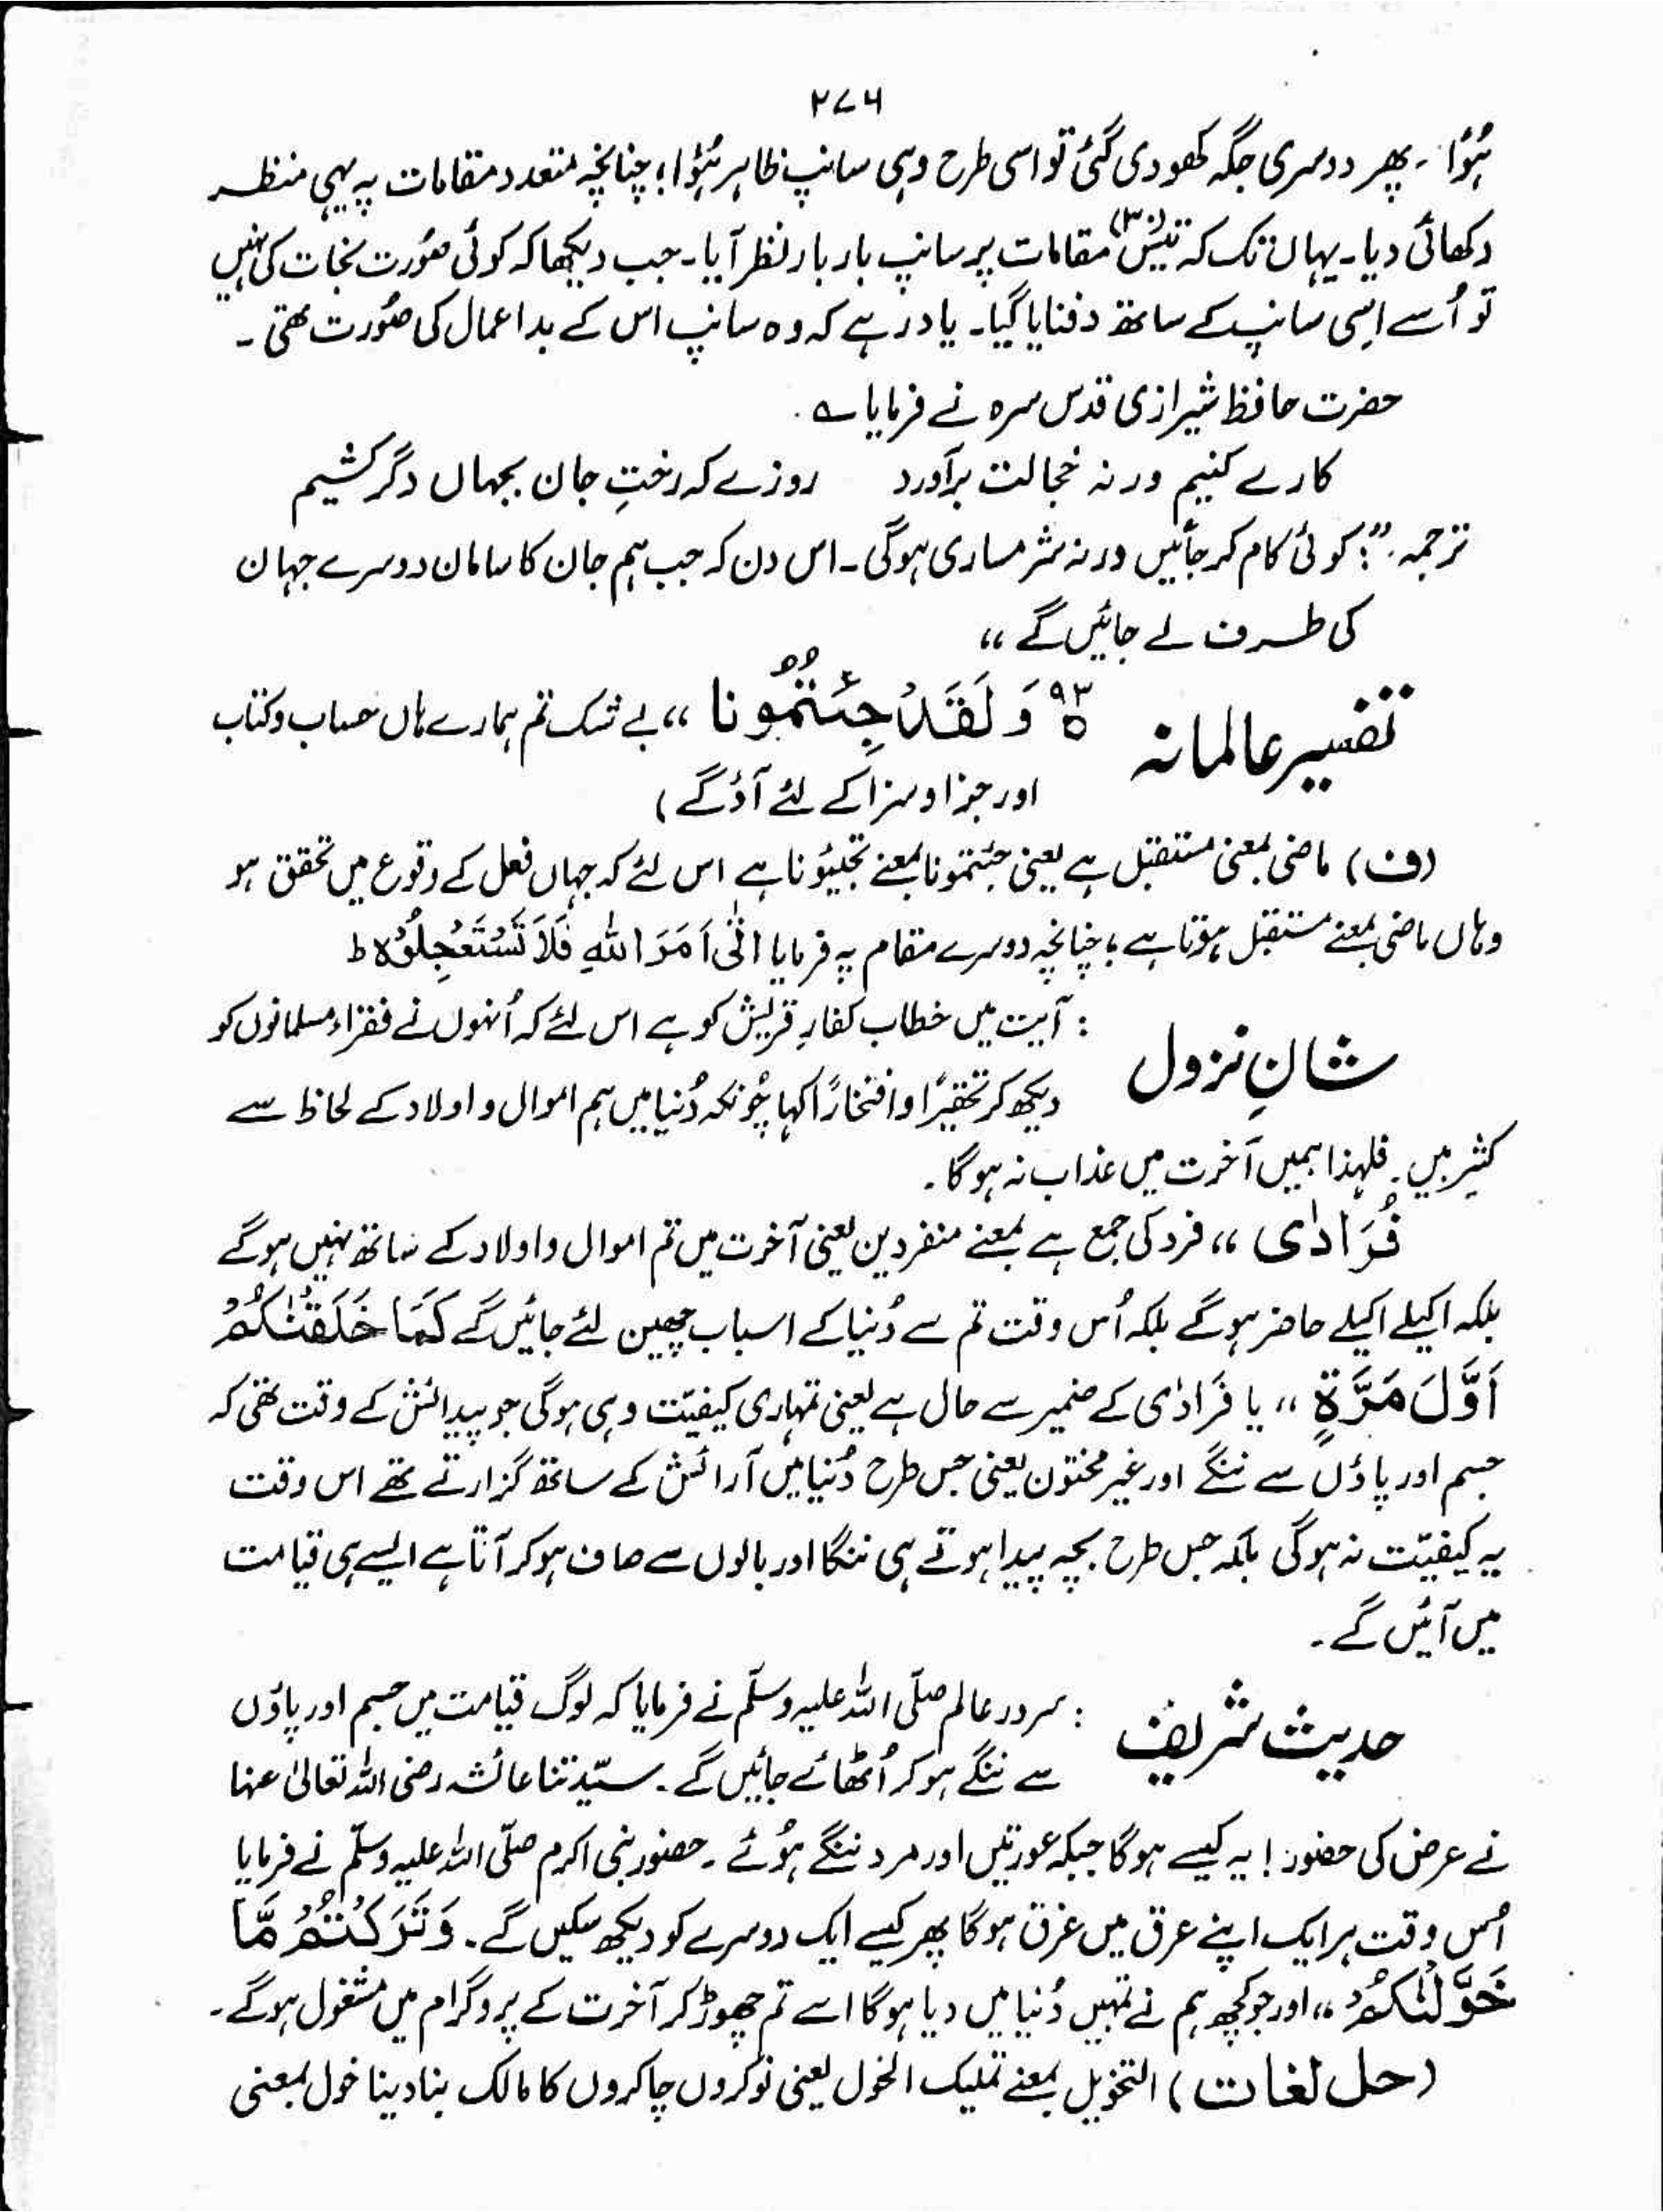 ۲۷۶
ہُوَا ۔ پھر دوسری جگہ کھودی گئی تو اسی طرح وہی سانپ ظاہر ہُوَا؛ چنانچہ متعدد مقامات پہ یہی منظر
دکھائی دیا۔ یہاں تک کہ تیس (۳۰) مقامات پر سانپ بار بار نظر آیا۔ جب دیکھا کہ کوئی صُورت نجات کی نہیں
تو اُسے اِسی سانپ کے ساتھ دفنایا گیا۔ یاد رہے کہ وہ سانپ اس کے بد اعمال کی صُورت تھی ۔
حضرت حافظ شیرازی قدس سرہ نے فرمایا ؎
کارے کنیم ورنہ خجالت برآورد روزے کہ رختِ جان بجہاں دگر کشیم
ترجمہ :” کوئی کام کر جائیں ورنہ شرمساری ہوگی ۔ اس دن کہ جب ہم جان کا سامان دوسرے جہان
کی طرف لے جائیں گے “
تفسیر عالمانہ ۹۳ وَ لَقَدْ جِئْتُمُوْنَا ،، بے شک تم ہمارے ہاں حساب و کتاب
اور جزا و سزا کے لئے آؤ گے )
(ف) ماضی بمعنی مستقبل ہے یعنی جئتمونا بمعنے تجیئونا ہے اس لئے کہ جہاں فعل کے وقوع میں تحقق ہو
وہاں ماضی بمعنے مستقبل ہوتا ہے ؛ چنانچہ دوسرے مقام پہ فرمایا اَتٰی اَمْرُ اللّٰهِ فَلَا تَسْتَعْجِلُوْهُ ط
شانِ نزول : آیت میں خطاب کفارِ قریش کو ہے اس لئے کہ اُنہوں نے فقراء مسلمانوں کو
دیکھ کر تحقیرًا و افتخارًا کہا چُونکہ دُنیا میں ہم اموال و اولاد کے لحاظ سے
کثیر ہیں ۔ فلہٰذا ہمیں آخرت میں عذاب نہ ہو گا ۔
فُرَادٰی ،، فرد کی جمع ہے بمعنے منفردین یعنی آخرت میں تم اموال و اولاد کے ساتھ نہیں ہو گے
بلکہ اکیلے اکیلے حاضر ہو گے بلکہ اُس وقت تم سے دُنیا کے اسباب چھین لئے جائیں گے کَمَا خَلَقْنٰکُمْ
اَوَّلَ مَرَّةٍ ،، یا فُرادٰی کے ضمیر سے حال ہے یعنی تمہاری کیفیّت وہی ہوگی جو پیدائش کے وقت تھی کہ
جسم اور پاؤں سے ننگے اور غیر مختون یعنی جس طرح دُنیا میں آرائش کے ساتھ گزارتے تھے اس وقت
یہ کیفیّت نہ ہوگی بلکہ جس طرح بچہ پیدا ہوتے ہی ننگا اور بالوں سے صاف ہو کر آتا ہے ایسے ہی قیامت
میں آئیں گے ۔
حدیث شریف : سرورِ عالم صلّی اللہ علیہ وسلّم نے فرمایا کہ لوگ قیامت میں جسم اور پاؤں
سے ننگے ہو کر اُٹھائے جائیں گے ۔ سیّدتنا عائشہ رضی اللہ تعالیٰ عنہا
نے عرض کی حضور ! یہ کیسے ہوگا جبکہ عورتیں اور مرد ننگے ہُوئے ۔ حضور نبی اکرم صلّی اللہ علیہ وسلّم نے فرمایا
اُس وقت ہر ایک اپنے عرق میں غرق ہو گا پھر کیسے ایک دوسرے کو دیکھ سکیں گے ۔ وَ تَرَكْتُمْ مَّا
خَوَّلْنٰكُمْ ،، اور جو کچھ ہم نے تمہیں دُنیا میں دیا ہو گا اسے تم چھوڑ کر آخرت کے پروگرام میں مشغول ہو گے ۔
(حل لغات) التخویل بمعنے تملیک الخول یعنی نوکروں چاکروں کا مالک بنا دینا خول بمعنی